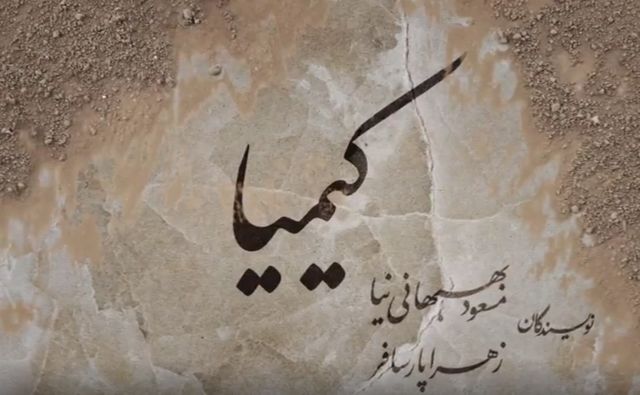 کیمیا
نویسندگان
مسعود بهبهانی نیا
زهرا پارسافر